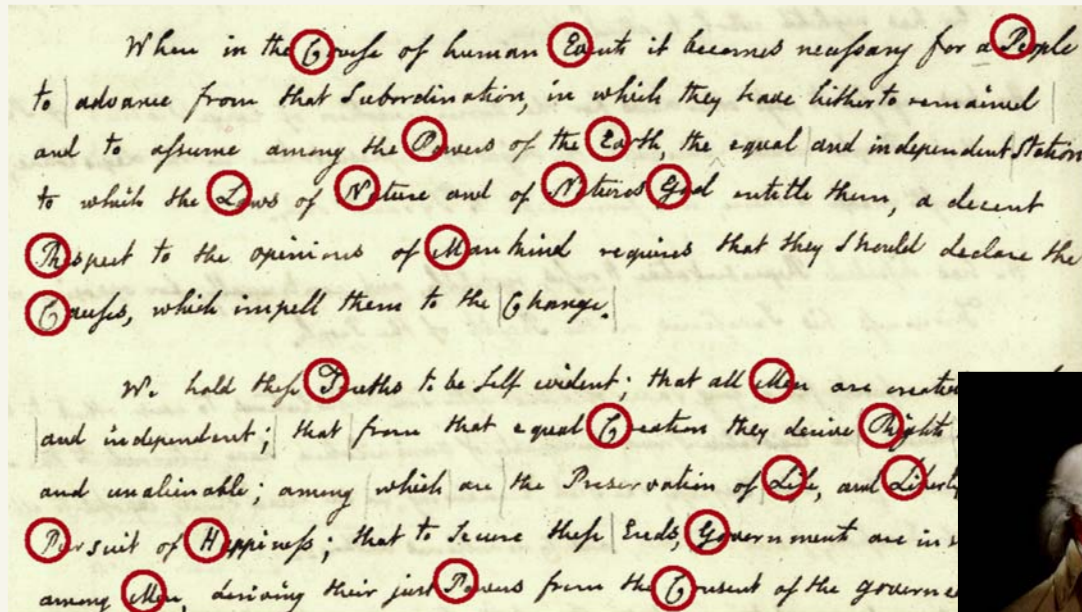 When in the Course of human Events it becomes necessary for a People
to advance from that Subordination, in which they have hitherto remained
and to assume among the Powers of the Earth, the equal and independent Station
to which the Laws of Nature and of Natures God entitle them, a decent
Respect to the opinions of Mankind requires that they Should declare the
Causes, which impell them to the Change.
We hold these Truths to be Self evident; that all Men are
and independent; that from that equal Creation they derive Rights
and unalienable; among which are the Preservation of Life, and
Pursuit of Happiness; that to Secure these Ends, Governments are
among Men, deriving their just Powers from the Consent of the